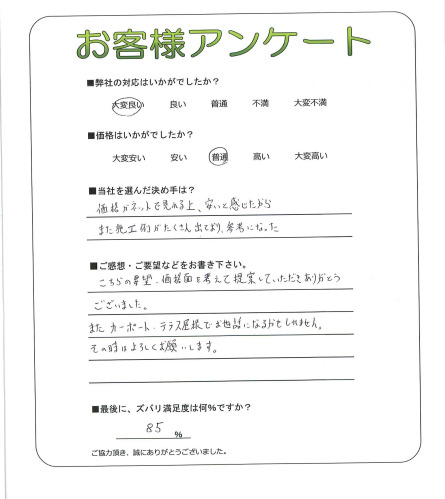 お客様アンケート
■弊社の対応はいかがでしたか？
大変良い 良い 普通 不満 大変不満
■価格はいかがでしたか？
大変安い 安い 普通 高い 大変高い
■当社を選んだ決め手は？
価格がネットで見れる上、安いと感じたから
また施工例がたくさん出ており、参考になった
■ご感想・ご要望などをお書き下さい。
こちらの希望・価格面を考えて提案していただきありがとう
ございました。
また カーポート・テラス屋根でお世話になるかもしれません。
その時はよろしくお願いします。
■最後に、ズバリ満足度は何%ですか？
85 %
ご協力頂き、誠にありがとうございました。